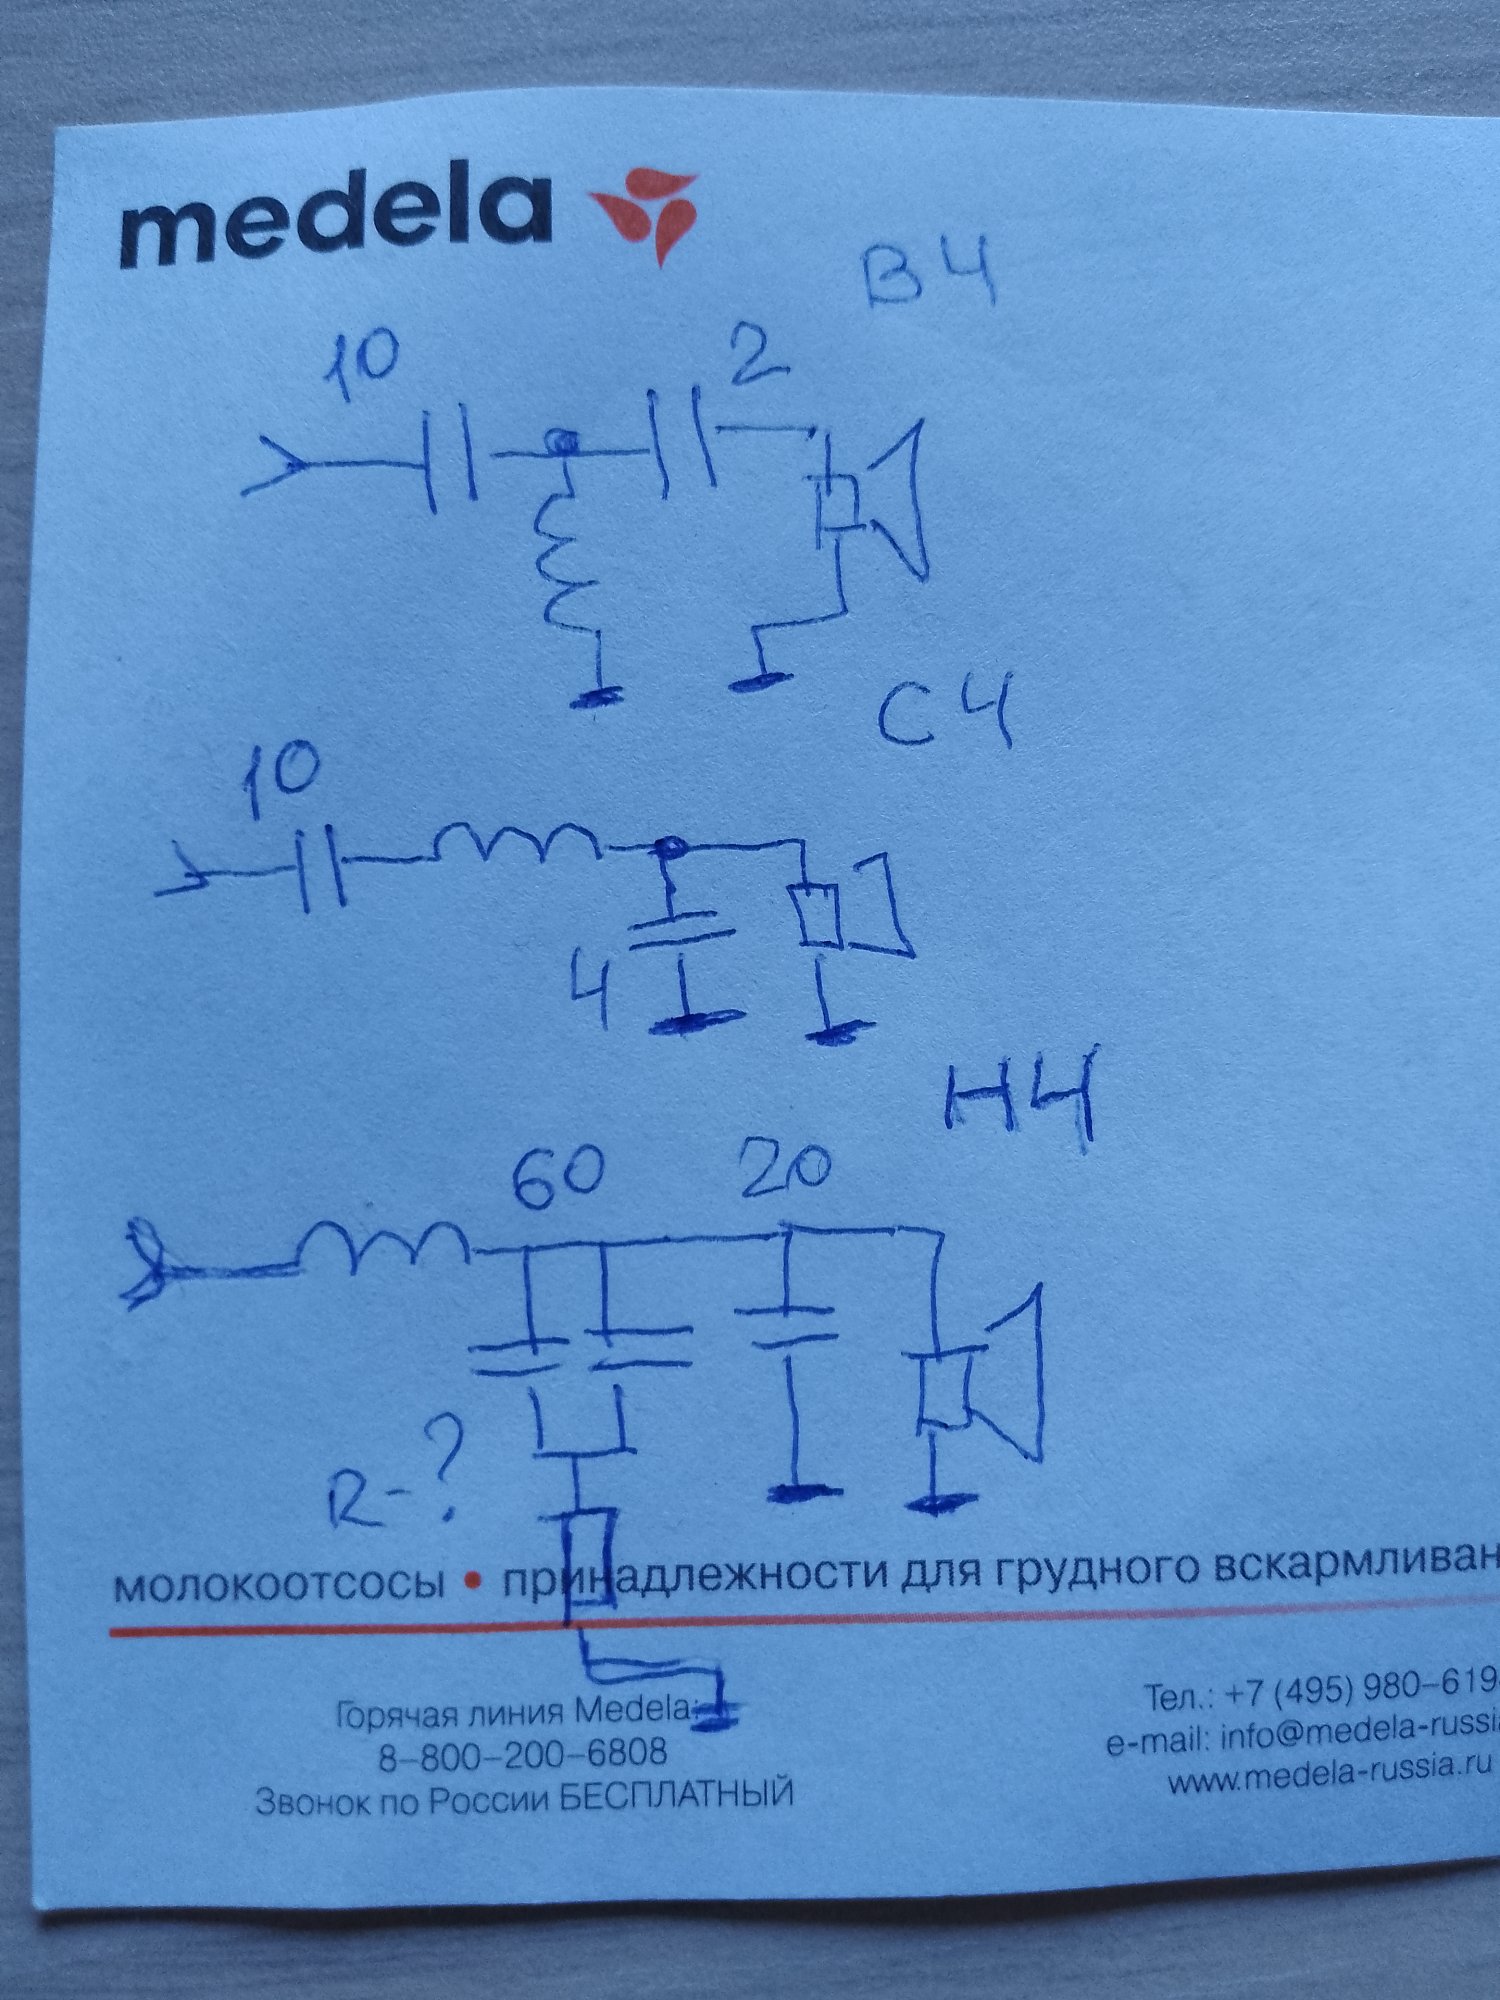 medela
ВЧ
10
2
СЧ
10
4
НЧ
60
20
R-?
молокоотсосы • принадлежности для грудного вскармливан
Горячая линия Medela:
8-800-200-6808
Звонок по России БЕСПЛАТНЫЙ
Тел.: +7 (495) 980-619
e-mail: info@medela-russi
www.medela-russia.ru